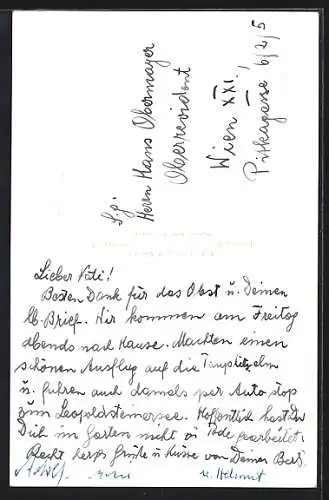 S.g.
Herrn Hans Obermayer
Oberrevident
Wien XXI.!
Pitkagasse 6/2/5
Lieber Vati!
Besten Dank für das Obst u. Deinen
lb. Brief. Wir kommen am Freitag
abends nach Hause. Machten einen
schönen Ausflug auf die Tauplitzalm
u. fuhren auch damals per Auto stop
zum Leopoldsteinersee. Hoffentlich hast Du
Dich im Garten nicht zu Tode gearbeitet.
Recht herzl. Grüße u. Küsse von Deiner
u. Helmut